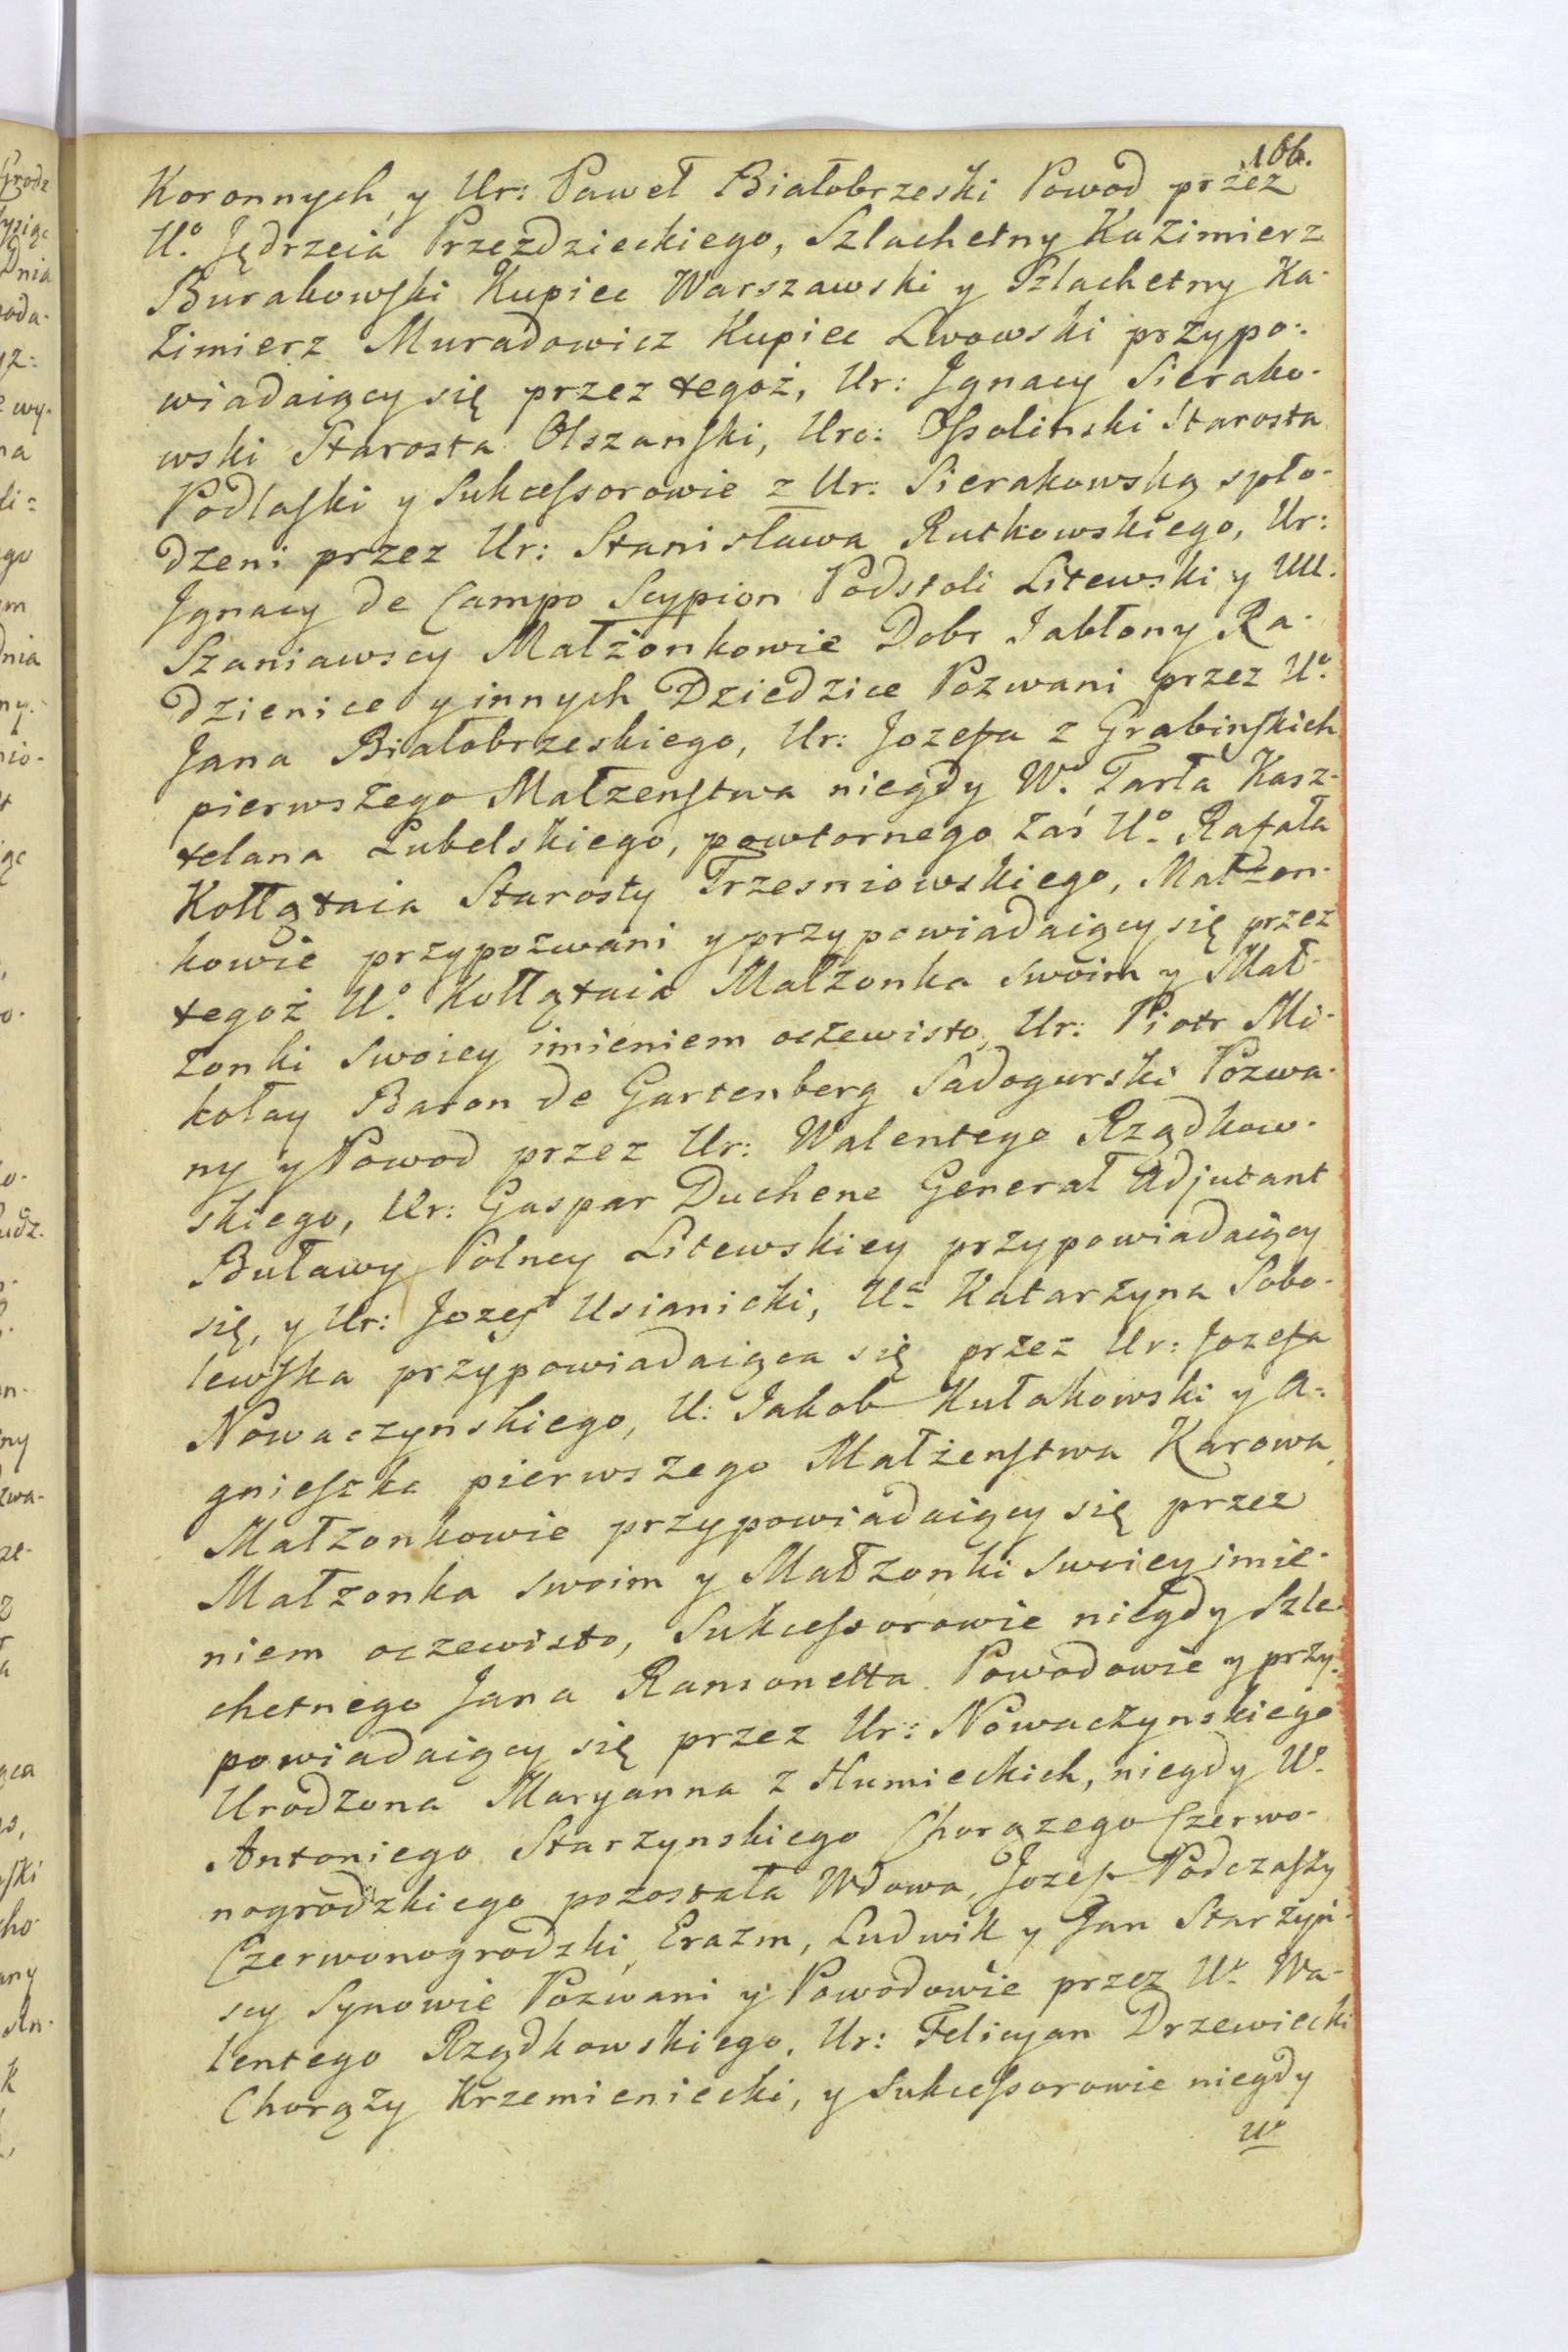 166.
Koronnych, y Ur: Paweł Białobrzeski Powod przez
U.º Jędrzeia Przezdzieckiego, Szlachetny Kazimierz
Burakowſki Kupiec Warszawski y Szlachetny Ka-
zimierz Muradowicz Kupiec Lwowski przypo-
wiadaiący się przez tegoż, Ur: Jgnacy Sierako-
wski Starosta Olszanſki, Uro: Oſsolinski Starosta
Podlaſki y Sukceſsorowie z Ur: Sierakowską spło-
dzeni przez Ur: Stanisława Rutkowskiego, Ur:
Jgnacy de Campo Scypion Podstoli Litewski y UU.
Szaniawscy Małżonkowie Dobr Jabłony Ra-
dzienice y innych Dziedzice Pozwani przez U.º
Jana Białobrzeskiego, Ur: Jozefa z Grabinſkich
pierwszego Małzenſtwa niegdy W.º Tarła Kasz-
telana Lubelskiego, powtornego zaś U.º Rafała
Kołłątaia Starosty Trzesniowskiego, Małżon-
kowie przypozwani y przypowiadaiący się przez
tegoż U.º Kołłątaia Małzonka swoim y Mał-
zonki swoiey imieniem oczewisto, Ur: Piotr Mi-
kołay Baron de Gartenberg Sadogurski Pozwa-
ny y Powod przez Ur: Walentego Rządkow-
skiego, Ur: Gaspar Duchene Generał Adjutant
Buławy Polney Litewskiey przypowiadaiący
się, y Ur: Jozef Usianicki, U.ª Katarzyna Sobo-
lewſka przypowiadaiąca się przez Ur: Jozefa
Nowaczynskiego, U: Jakob Kułakowski y A-
gnieſzka pierwszego Małżenſtwa Karowa,
Małzonkowie przypowiadaiący się przez
Małzonka swoim y Małzonki swoiey imie-
niem oczewisto, Sukceſsorowie niegdy Szla-
chetnego Jana Ransonetta Powodowie y przy-
powiadaiący się przez Ur: Nowaczynskiego
Urodzona Maryanna z Humieckich, niegdy W.º
Antoniego Starzynskiego Chorązego Czerwo-
nogrodzkiego pozostała Wdowa, Jozef Podczaſzy
Czerwonogrodzki, Erazm, Ludwik y Jan Starzyń-
scy Synowie Pozwani y Powodowie przez U.º Wa-
lentego Rządkowskiego, Ur: Felicyan Drzewiecki
Chorąży Krzemieniecki, y Sukceſsorowie niegdy
W.º